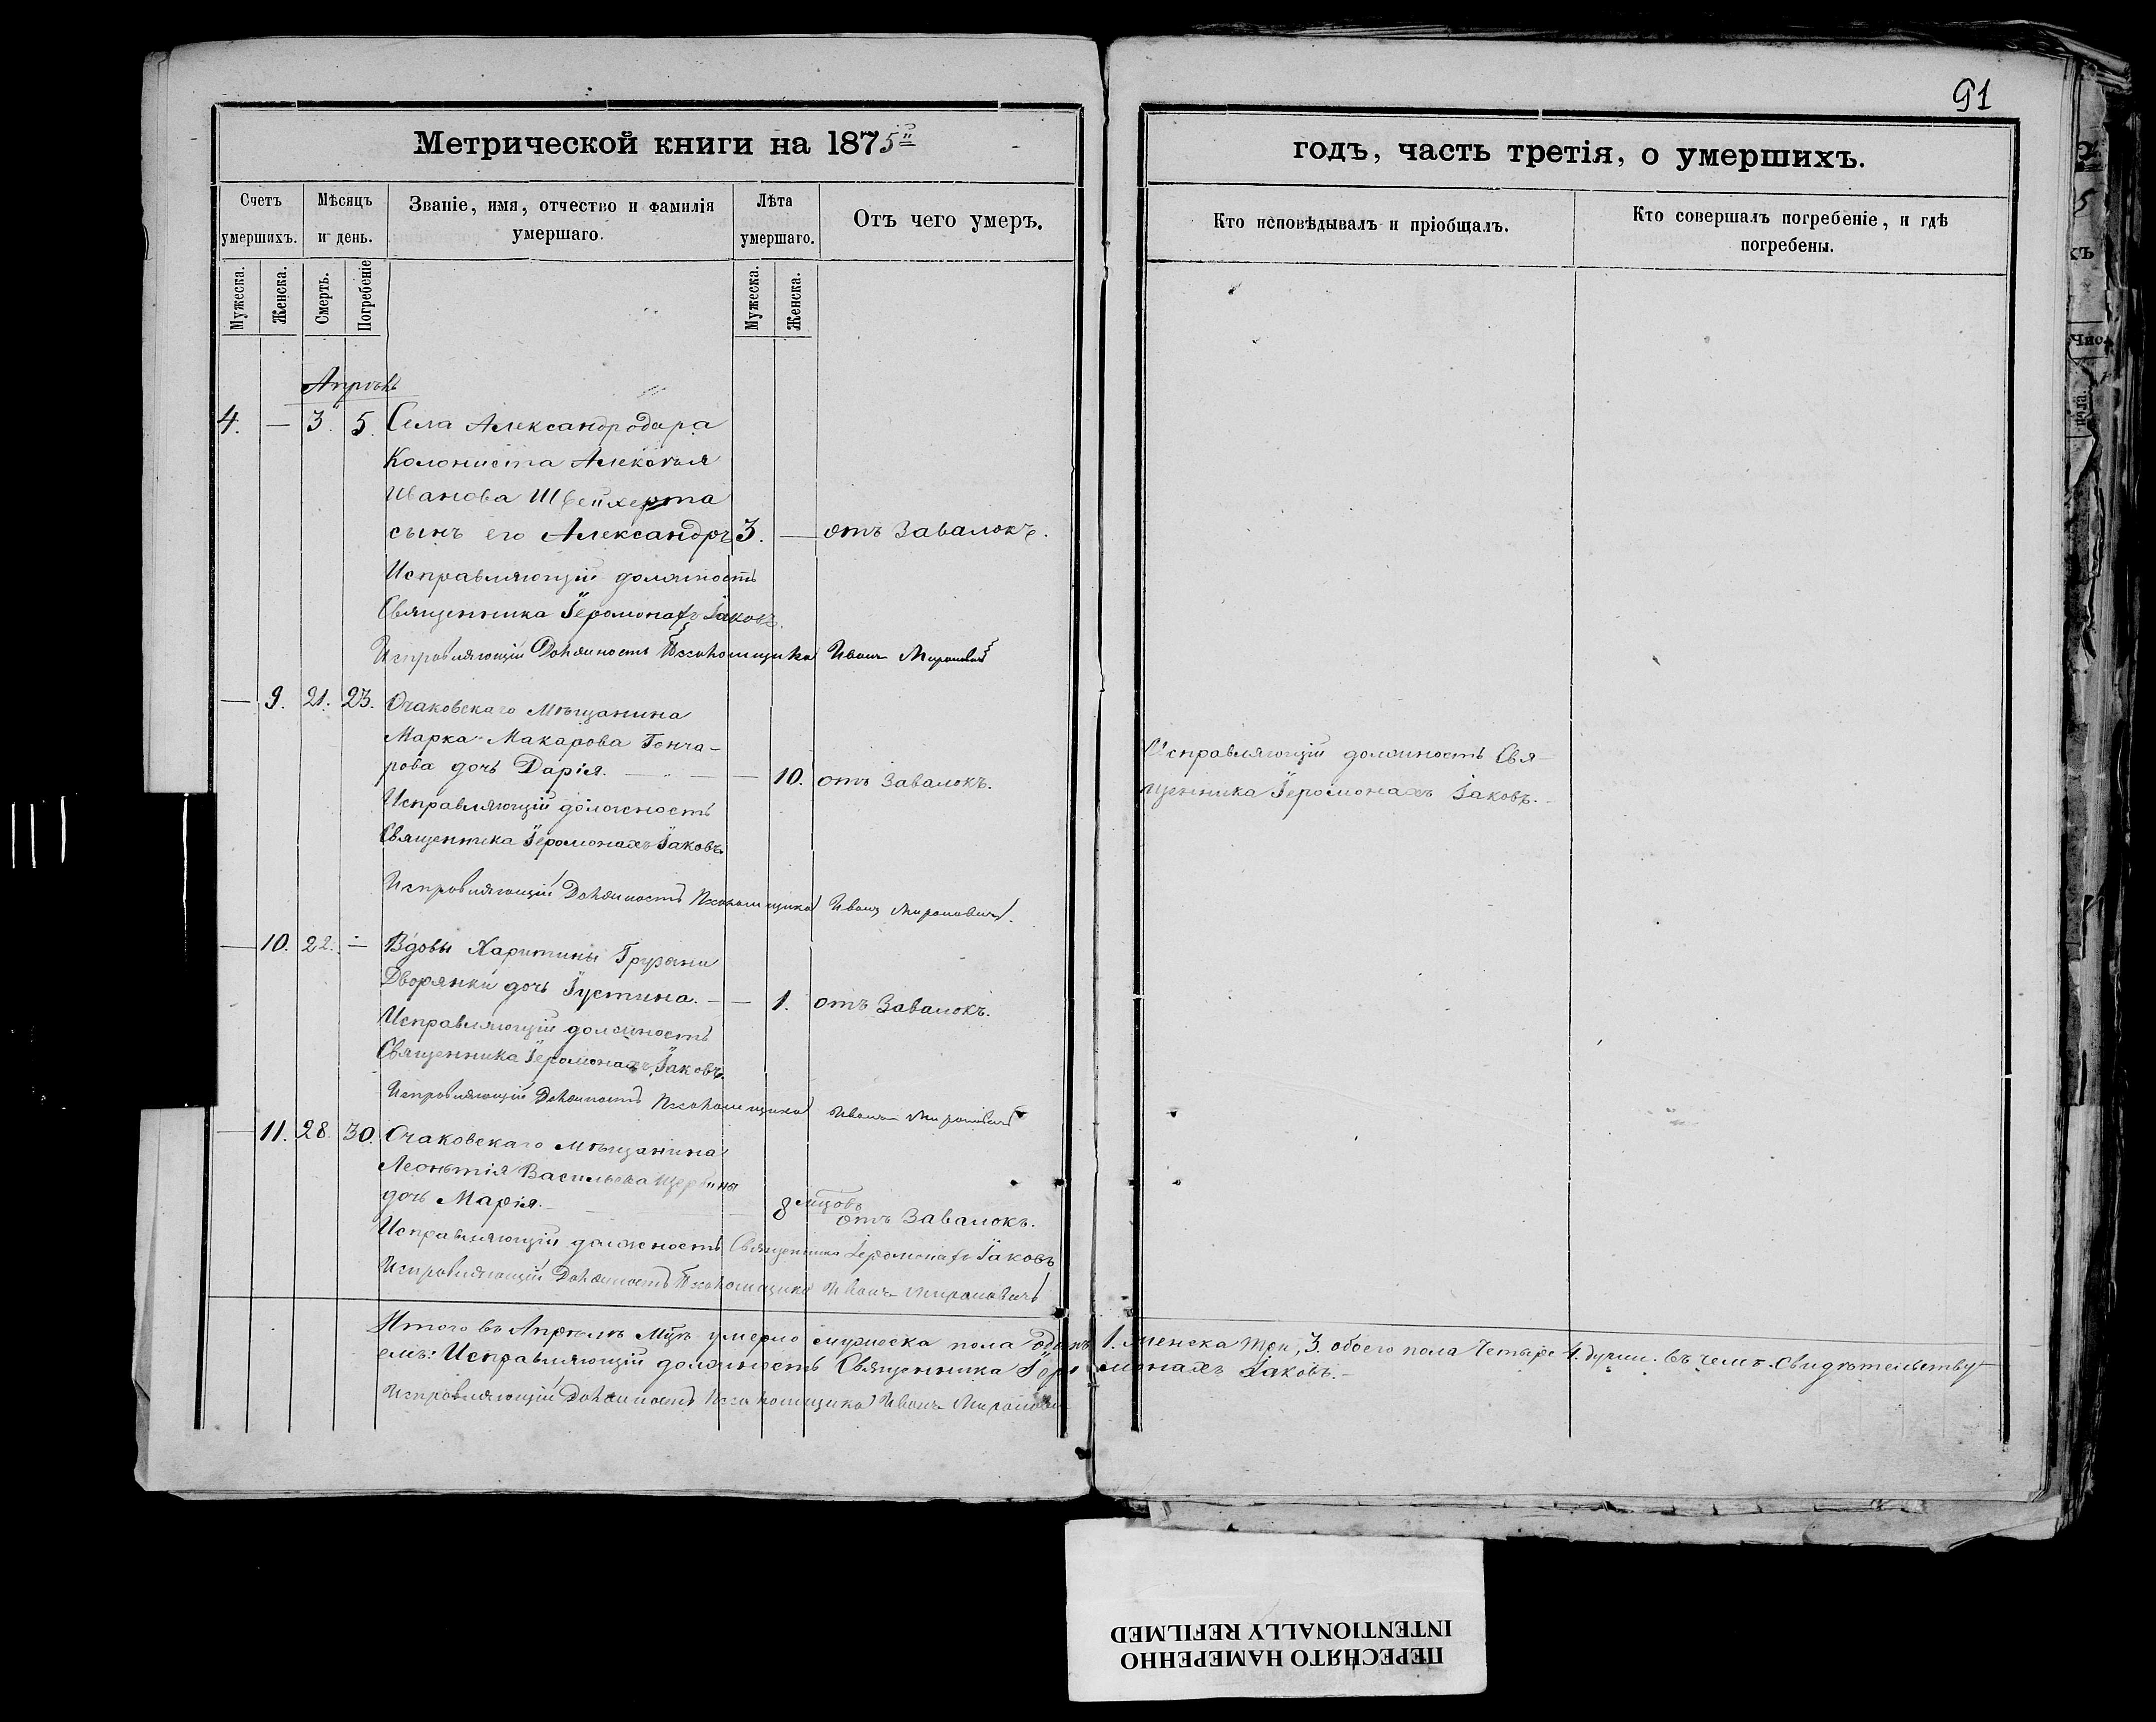 91
Метрической книги на 1875й
годъ, часть третія, о умершихъ.
Счетъ умершихъ.
Мѣсяцъ и день.
Званіе, имя, отчество и фамилія умершаго.
Лѣта умершаго.
Отъ чего умеръ.
Кто исповѣдывалъ и пріобщалъ.
Кто совершалъ погребеніе, и гдѣ погребены.
Мужеска. Женска. Смерть. Погребеніе Мужеска. Женска.
Апрѣль
4. — 3. 5. Села Александродара
Колониста Алексѣя
Иванова Швейхерта
сынъ его Александръ 3. — отъ Завалокъ.
Исправляющій должность
Священника Іеромонахъ Іаковъ.
Исправляющій Должность Псаломщика Иванъ Мироновичъ
— 9. 21. 23. Очаковскаго Мѣщанина
Марка Макарова Гонча-
рова дочь Дарія. — — 10. отъ Завалокъ.
Исправляющій должность
Священника Іеромонахъ Іаковъ.
Исправляющій Должность Псаломщика Иванъ Мироновичъ.
Исправляющій должность Свя-
щенника Іеромонахъ Іаковъ.-
— 10. 22. — Вдовы Харитины
Дворянки дочь Іустина. — — 1. отъ Завалокъ.
Исправляющій должность
Священника Іеромонахъ Іаковъ.
Исправляющій Должность Псаломщика Иванъ Мироновичъ
— 11. 28. 30. Очаковскаго мѣщанина
Леонтія Васильева Щербины
дочь Марія. — — 8 мцовъ отъ Завалокъ.
Исправляющій должность Священника Іеромонахъ Іаковъ
Исправляющій Должность Псаломщика Иванъ Мироновичъ
Итого въ Апрѣлѣ Мцѣ умерло мужеска пола одинъ 1. женска три, 3. обоего пола Четыре 4. души. въ чемъ Свидѣтельству-
емъ: Исправляющій должность Священника Іеромонахъ Іаковъ.-
Исправляющій Должность Псаломщика Иванъ Мироновичъ
ПЕРЕСНЯТО НАМЕРЕННО
INTENTIONALLY REFILMED